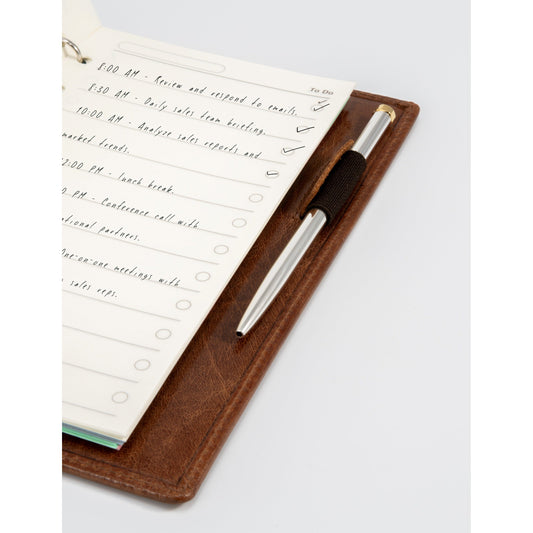 To Do
8:00 AM - Review and respond to emails.
8:30 AM - Daily sales team briefing.
10:00 AM - Analyze sales reports and
market trends.
2:00 PM - lunch break.
PM - Conference call with
ational partners.
One-on-one meetings with
sales reps.